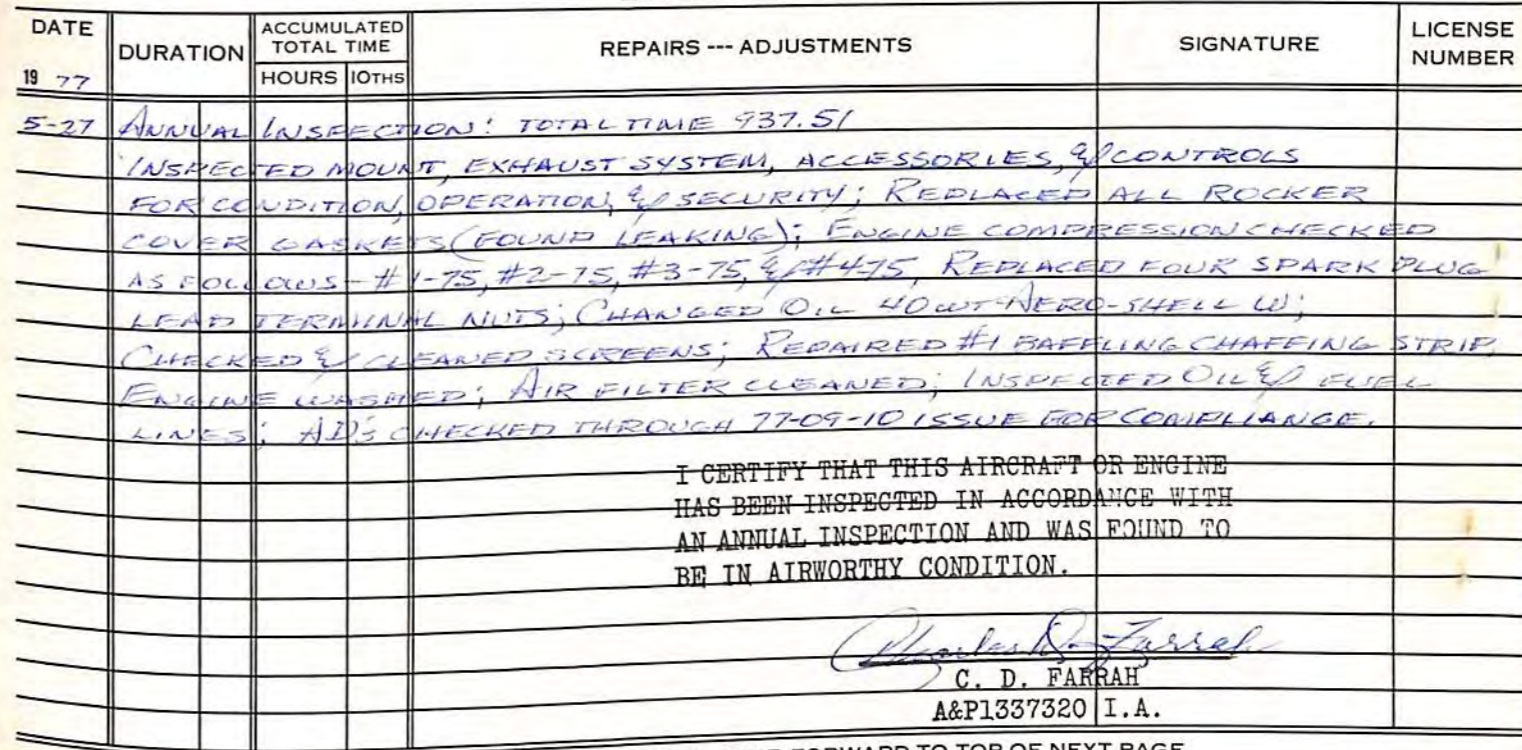 DATE DURATION ACCUMULATED TOTAL TIME REPAIRS --- ADJUSTMENTS SIGNATURE LICENSE NUMBER
19 77 HOURS 10THS
5-27 ANNUAL INSPECTION: TOTAL TIME 937.51
INSPECTED MOUNT, EXHAUST SYSTEM, ACCESSORIES, & CONTROLS
FOR CONDITION, OPERATION, & SECURITY; REPLACED ALL ROCKER
COVER GASKETS (FOUND LEAKING); ENGINE COMPRESSION CHECKED
AS FOLLOWS - #1-75, #2-75, #3-75, & #4-75, REPLACED FOUR SPARK PLUG
LEAD TERMINAL NUTS; CHANGED OIL 40WT-AERO-SHELL W;
CHECKED & CLEANED SCREENS; REPAIRED #1 BAFFLING CHAFFING STRIP,
ENGINE WASHED; AIR FILTER CLEANED; INSPECTED OIL & FUEL
LINES; AD'S CHECKED THROUGH 77-09-10 ISSUE FOR COMPLIANCE.
I CERTIFY THAT THIS AIRCRAFT OR ENGINE
HAS BEEN INSPECTED IN ACCORDANCE WITH
AN ANNUAL INSPECTION AND WAS FOUND TO
BE IN AIRWORTHY CONDITION.
Charles D. Farrah
C. D. FARRAH
A&P1337320 I.A.
FORWARD TO TOP OF NEXT PAGE